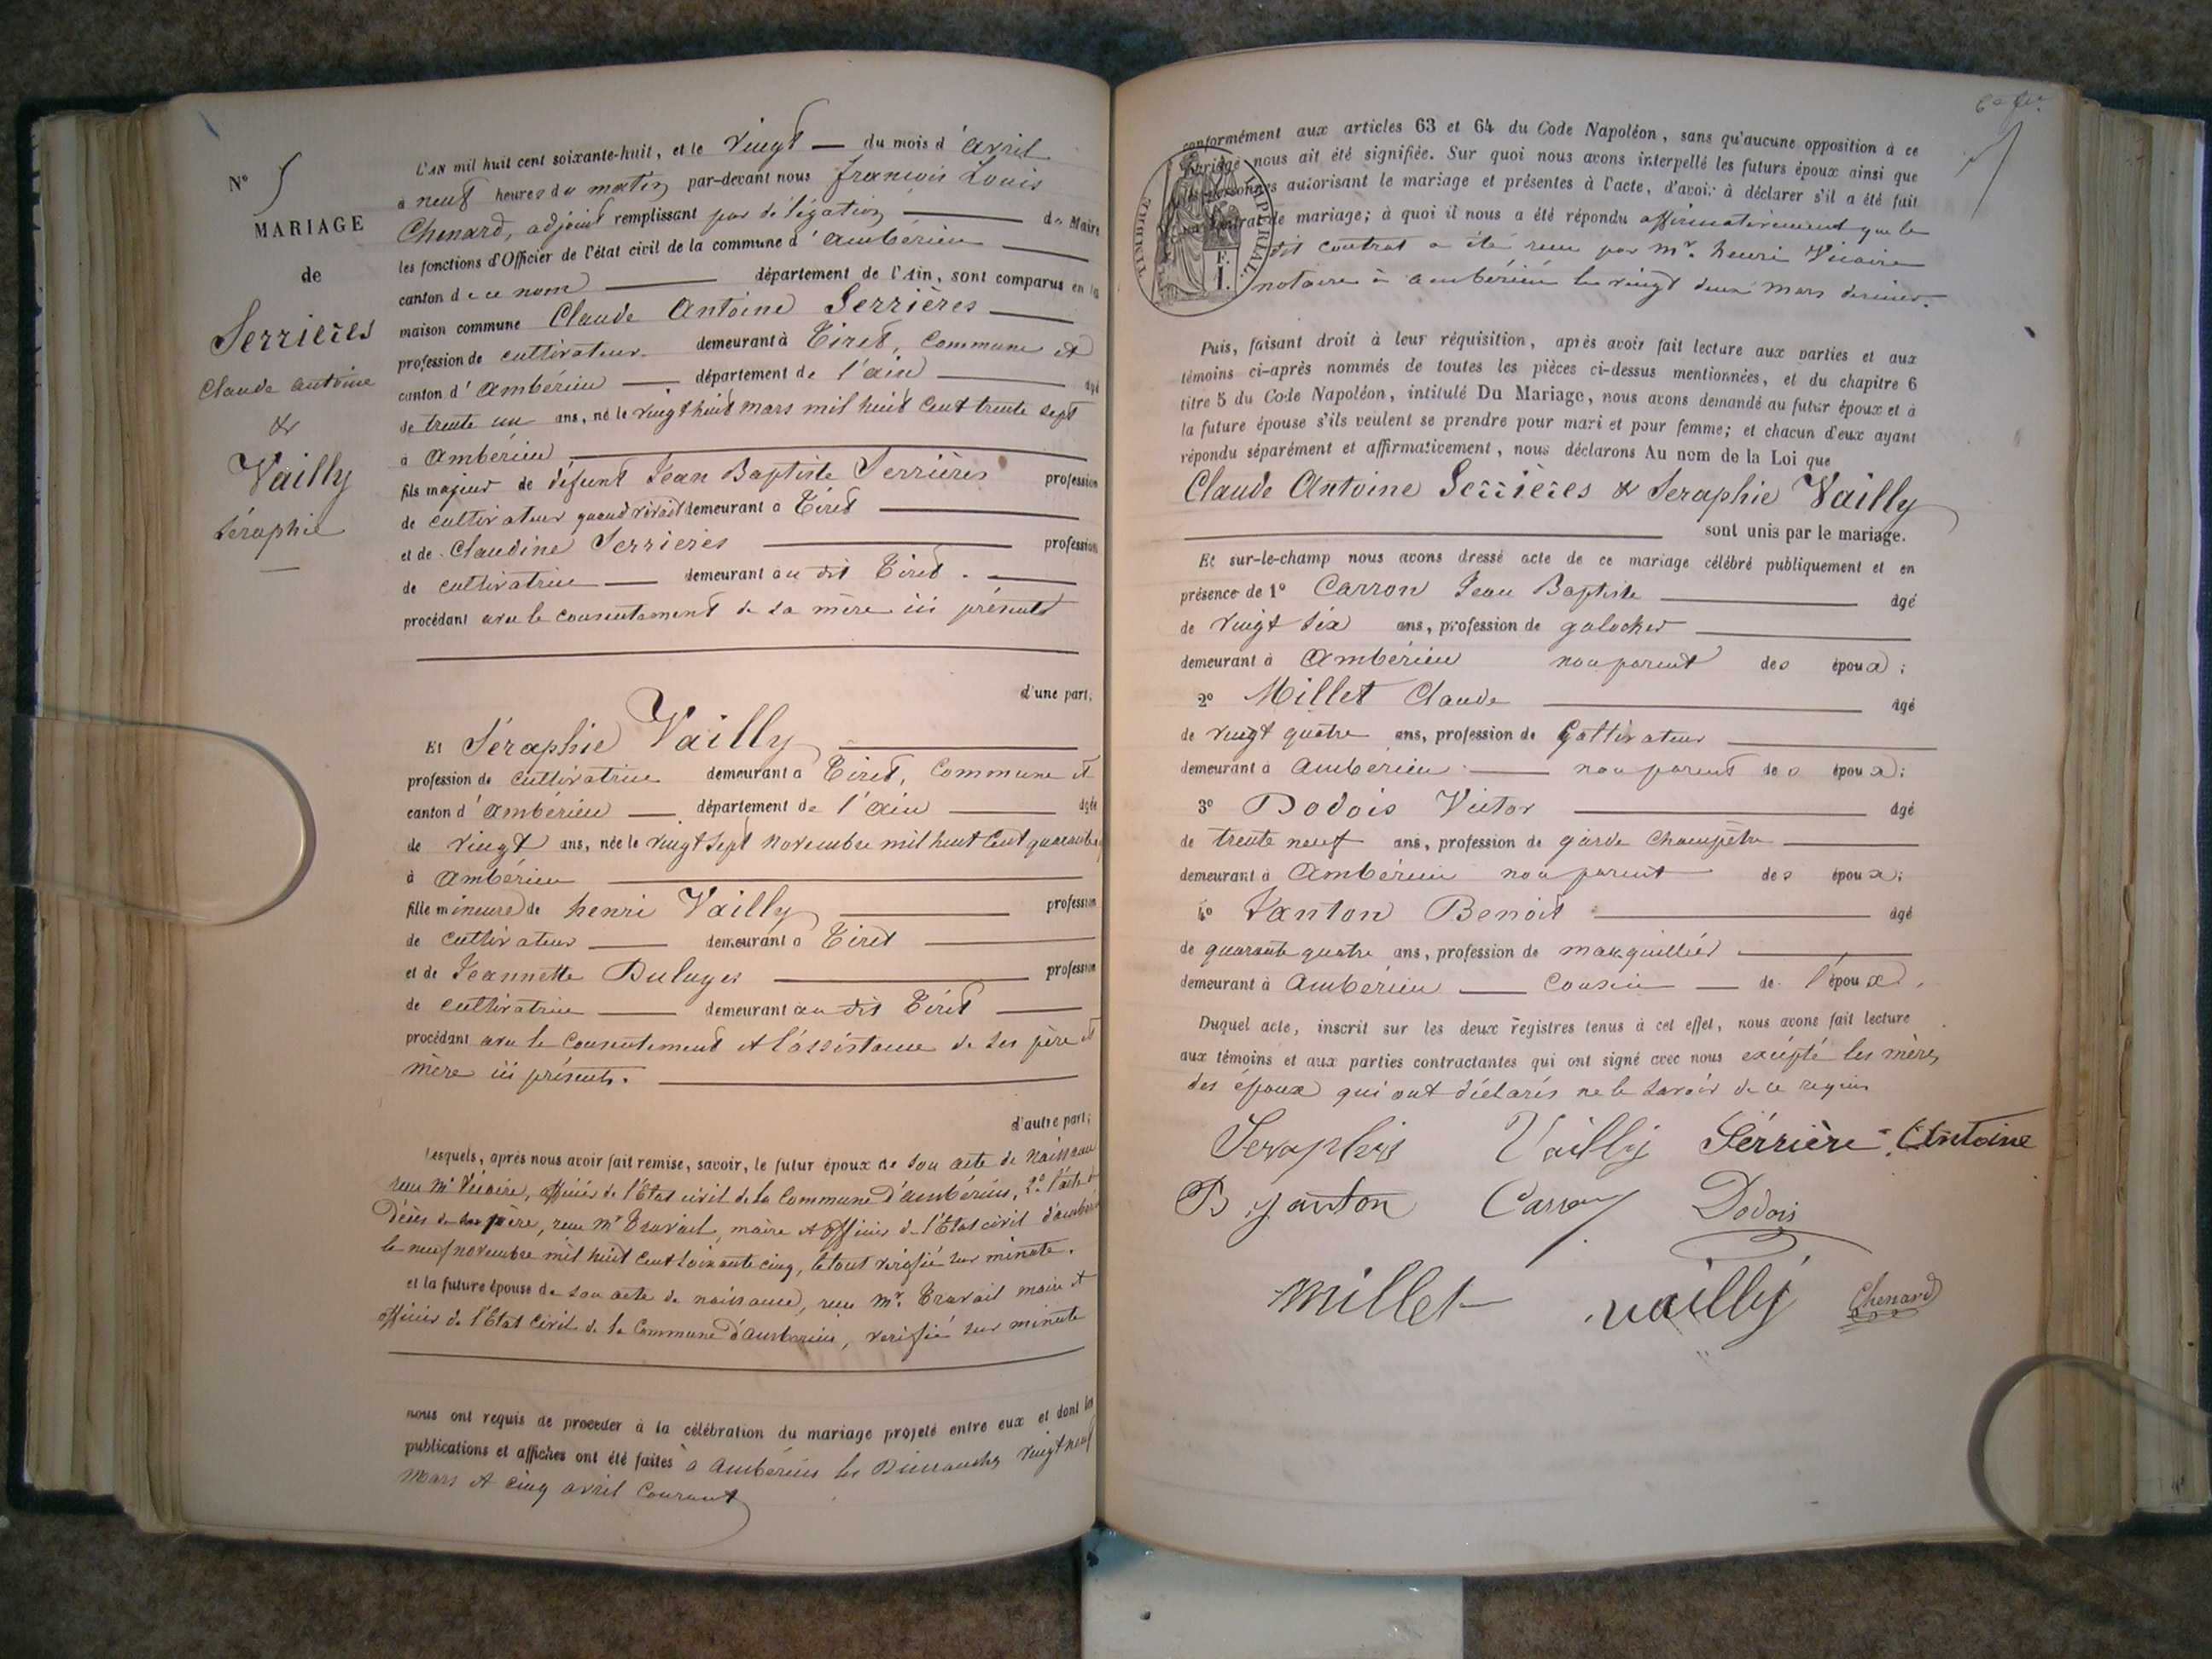 N° 5
MARIAGE
de
Serrières
Claude Antoine
&
Vailly
Séraphie
L'AN mil huit cent soixante-huit, et le vingt — du mois d'avril
à neuf heures du matin par-devant nous francois Louis
Chenard, adjoint remplissant par délégation — du Maire
les fonctions d'Officier de l'état civil de la commune d'ambérieu
canton de ce nom — département de l'Ain, sont comparus en la
maison commune Claude Antoine Serrières
profession de cultivateur demeurant à Tiret, Commune et
canton d'Ambérieu — département de l'ain — âgé
de trente un ans, né le vingt huit mars mil huit cent trente sept
à Ambérieu
fils majeur de défunt Jean Baptiste Serrières profession
de cultivateur quand vivait demeurant à Tiret
et de Claudine Serrieres — profession
de cultivatrice — demeurant au dit Tiret.
procédant avec le consentement de sa mère ici présente
d'une part;
Et Séraphie Vailly
profession de cultivatrice demeurant à Tiret, Commune et
canton d'Ambérieu — département de l'ain — âgée
de vingt ans, née le vingt sept novembre mil huit cent quarante
à Ambérieu
fille mineure de henri Vailly — profession
de cultivateur — demeurant à Tiret
et de Jeannette — profession
de cultivatrice — demeurant au dit Tiret
procédant avec le consentement et l'assistance de ses père et
mère ici présents.
d'autre part;
Lesquels, après nous avoir fait remise, savoir, le futur époux de son acte de naissance
reçu Mr Vicaire, officier de l'Etat civil de la Commune d'ambérieu, 2° l'acte de
Décès de son père, reçu Mr Travail, maire et officier de l'Etat civil d'ambérieu
le neuf novembre mil huit cent soixante cinq, le tout vérifié sur minute.
et la future épouse de son acte de naissance, reçu Mr. Travail maire et
officier de l'Etat Civil de la Commune d'ambérieu, verifié sur minute
nous ont requis de procéder à la célébration du mariage projeté entre eux et dont les
publications et affiches ont été faites à ambérieu les Dimanches vingt neuf
mars et cinq avril courant
conformément aux articles 63 et 64 du Code Napoléon, sans qu'aucune opposition à ce
mariage nous ait été signifiée. Sur quoi nous avons interpellé les futurs époux ainsi que
les personnes autorisant le mariage et présentes à l'acte, d'avoir à déclarer s'il a été fait
un contrat de mariage; à quoi il nous a été répondu affirmativement que le
dit contrat a été reçu par mr. henri Vicaire
notaire à ambérieu le vingt deux mars dernier.
TIMBRE IMPERIAL
1 F.
Puis, faisant droit à leur réquisition, après avoir fait lecture aux parties et aux
témoins ci-après nommés de toutes les pièces ci-dessus mentionnées, et du chapitre 6
titre 5 du Code Napoléon, intitulé Du Mariage, nous avons demandé au futur époux et à
la future épouse s'ils veulent se prendre pour mari et pour femme; et chacun d'eux ayant
répondu séparément et affirmativement, nous déclarons Au nom de la Loi que
Claude Antoine Serrières & Seraphie Vailly
sont unis par le mariage.
Et sur-le-champ nous avons dressé acte de ce mariage célébré publiquement et en
présence de 1° Carron Jean Baptiste — âgé
de vingt six ans, profession de galocher
demeurant à Ambérieu non parent des époux;
2° Millet Claude — âgé
de vingt quatre ans, profession de Cultivateur
demeurant à Ambérieu — non parent des époux;
3° Dodois Victor — âgé
de trente neuf ans, profession de garde champêtre
demeurant à Ambérieu non parent des époux;
4° Janton Benoit — âgé
de quarante quatre ans, profession de marguillier
demeurant à Ambérieu — Cousin — de l'époux.
Duquel acte, inscrit sur les deux registres tenus à cet effet, nous avons fait lecture
aux témoins et aux parties contractantes qui ont signé avec nous excepté les mères
des époux qui ont déclarés ne le savoir de ce requis
Seraphie Vailly Sérrière Antoine
B Janton Carron Dodois
Millet vailly Chenard